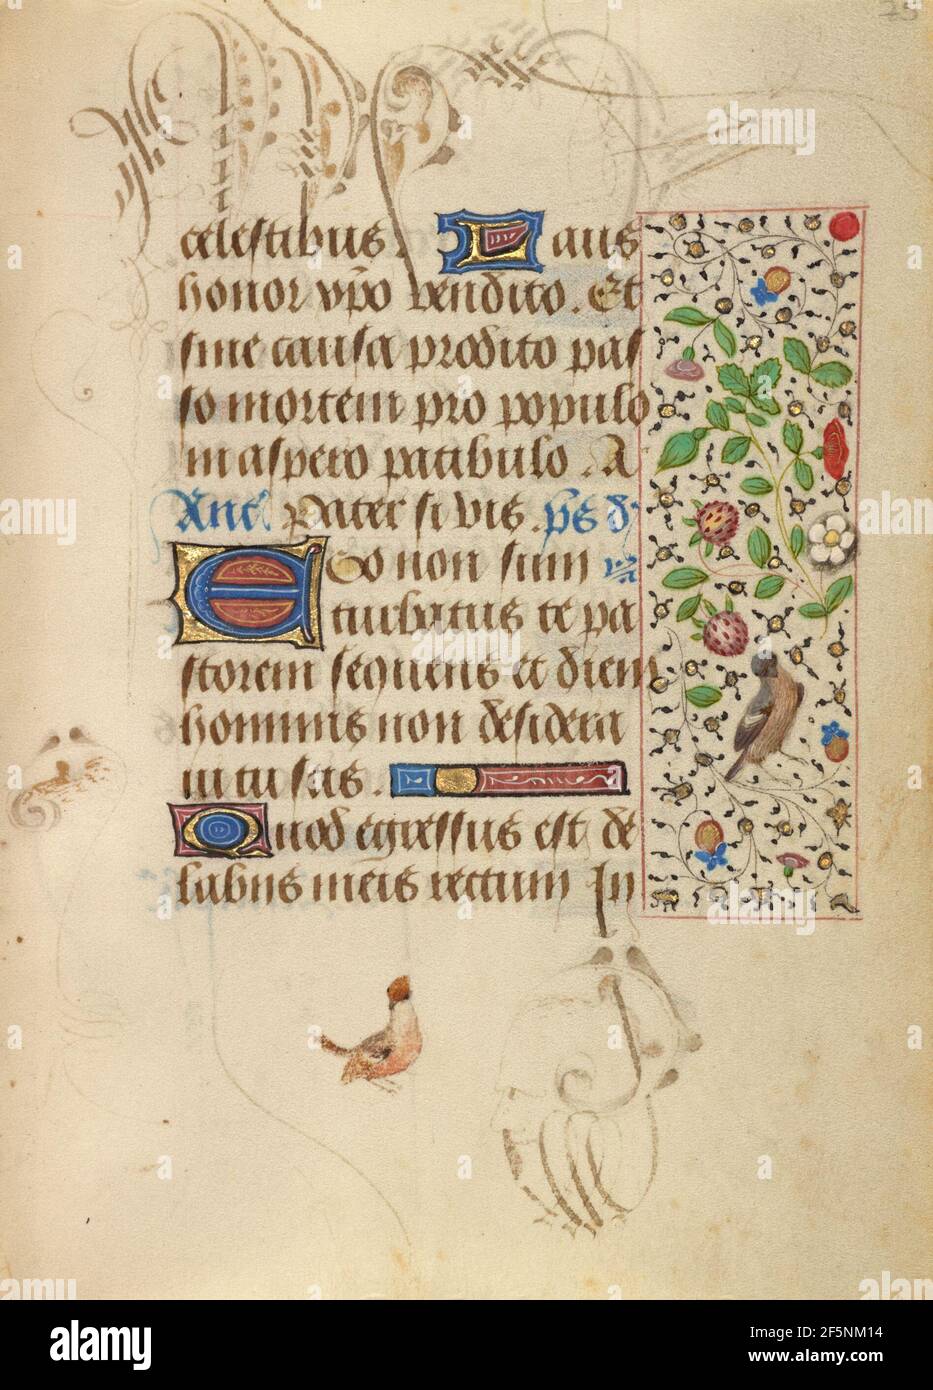 25
celestibus. Laus
honor xp̄o vendito. Et
sine causa prodito pas
so mortem pro populo
in aspero patibulo. A
Ane' pater si vis. ps d'
EGo non sum
turbatus te pa
storem sequens et diem
hominis non desidera
ui tu scis.
Quod egressus est de
labiis meis rectum In
alamy
Image ID: 2F5NM14
www.alamy.com